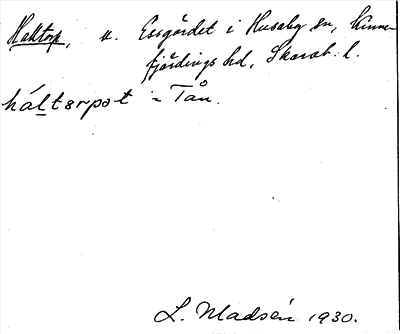 Haltorp, u. Essgärdet i Husaby sn, Kinne-
fjärdings hd, Skarab. l.
háltɘrpɘt ~ Tån.
L. Madsén 1930.